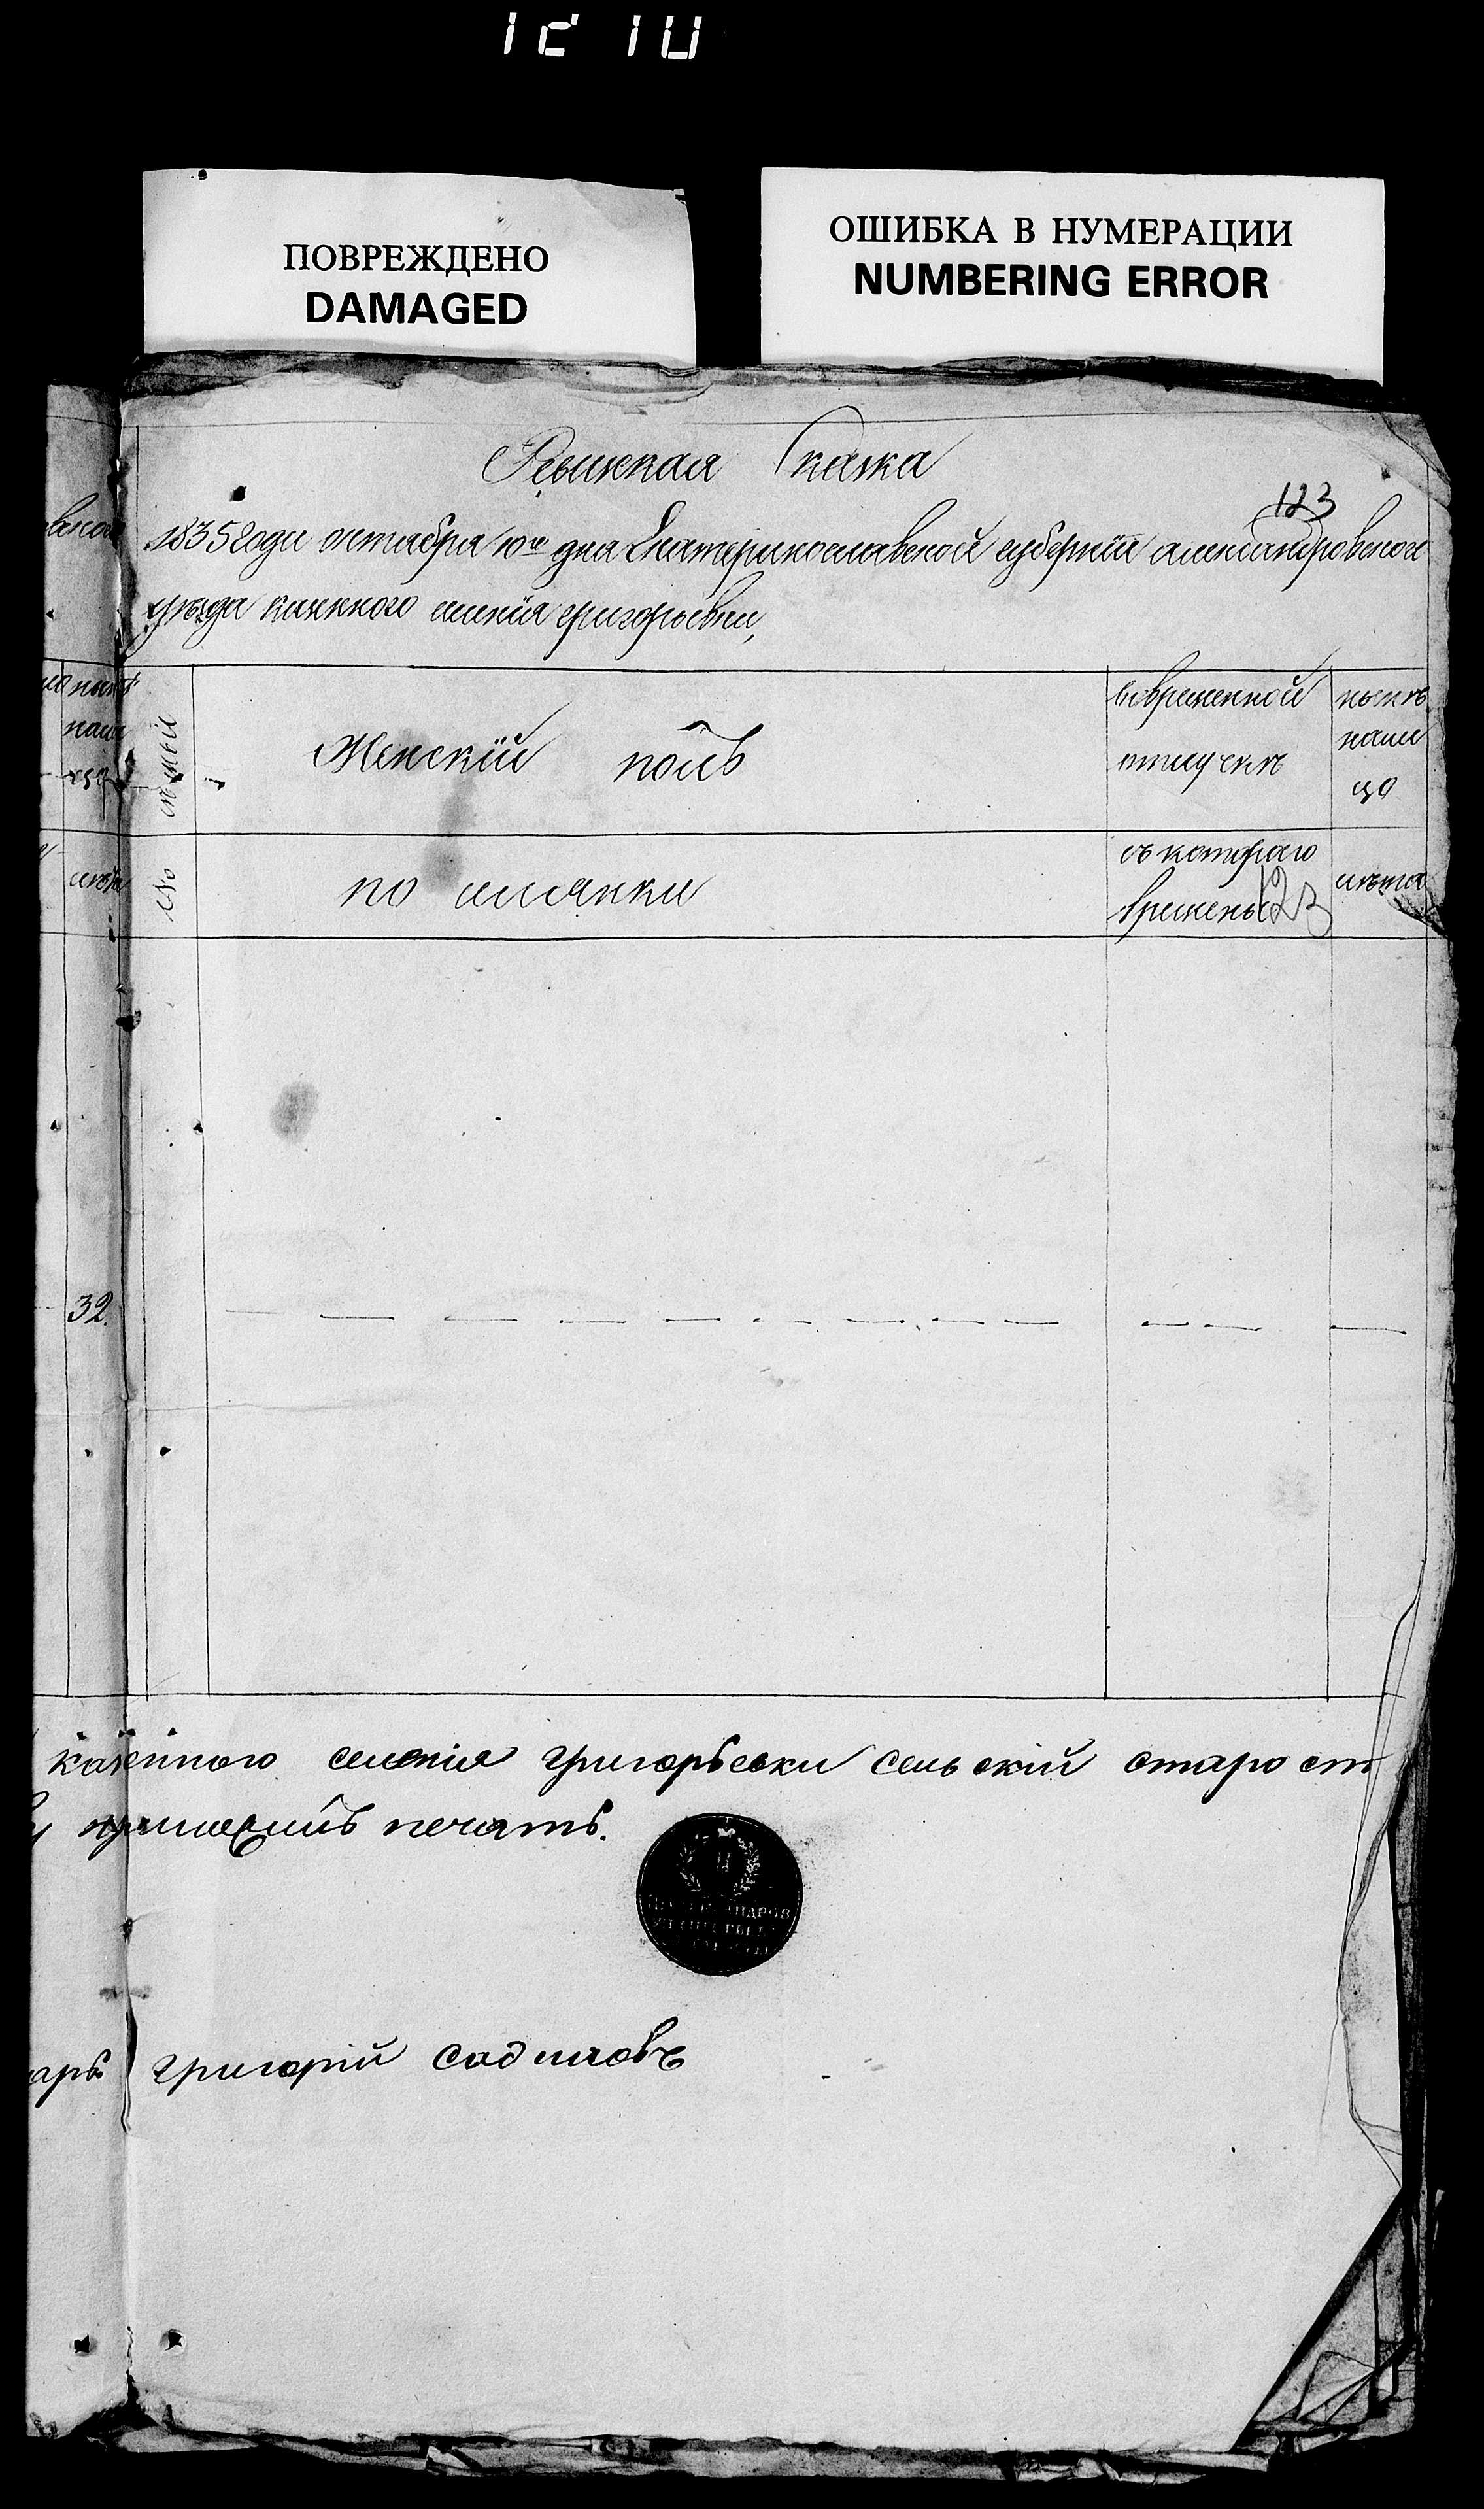 ПОВРЕЖДЕНО
DAMAGED
ОШИБКА В НУМЕРАЦИИ
NUMBERING ERROR
Ревижкая Скаска
123
1835 года октабря 10го дна Екатеринославской губернїи александровского
уезда григорьевки,
семьи
Женскїй полъ
вовременной
отлучкѣ
нынѣ
нали
цо
№
по имянки
съ котораго
времены
123
лѣта
лѣта
32.
казенного селенія григорьевки сельскій старост
приложилъ печать.
арь григорій садиловъ